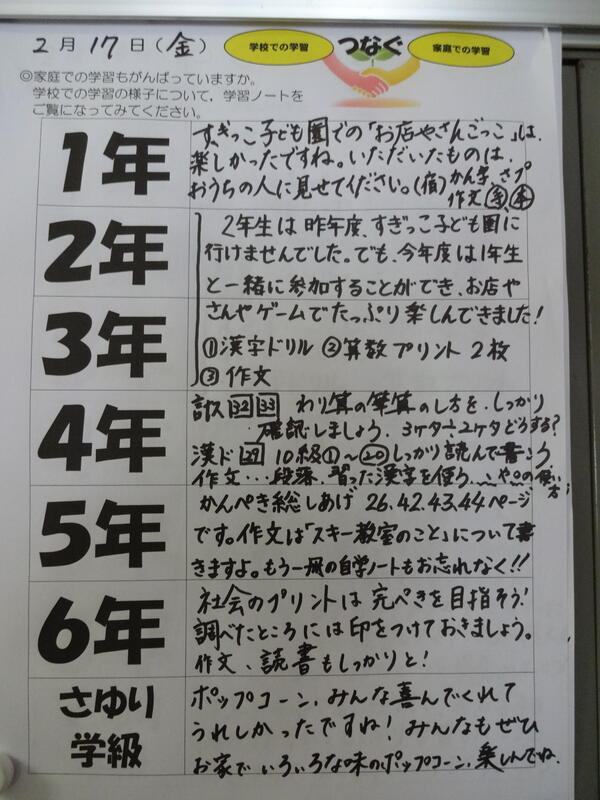 2月17日(金)
学校での学習
つなぐ
家庭での学習
◎家庭での学習もがんばっていますか。
学校での学習の様子について、学習ノートを
ご覧になってみてください。
1年
すぎっこ子ども園での「お店やさんごっこ」は、
楽しかったですね。いただいたものは、
おうちの人に見せてください。(宿)かん字、さプ
作文
2年
3年
2年生は昨年度、すぎっこ子ども園に
行けませんでした。でも、今年度は1年生
と一緒に参加することができ、お店や
さんやゲームでたっぷり楽しんできました!
①漢字ドリル ②算数プリント 2枚
③作文
4年
計ス 32 33 わり算の筆算のし方を、しっかり
確認しましょう。3ケタ÷2ケタどうする?
漢ド 29 10級①~⑳しっかり読んで書こう
作文…段落、習った漢字を使う、、や。の使い方
5年
かんぺき総しあげ 26.42.43.44ページ
です。作文は「スキー教室のこと」について書
きますよ。もう一冊の自学ノートもお忘れなく!!
6年
社会のプリントは完ぺきを目指そう!
調べたところには印をつけておきましょう。
作文、読書もしっかりと!
さゆり
学級
ポップコーン、みんな喜んでくれて
うれしかったですね!みんなもぜひ
お家でいろいろな味のポップコーン、楽しんでね。